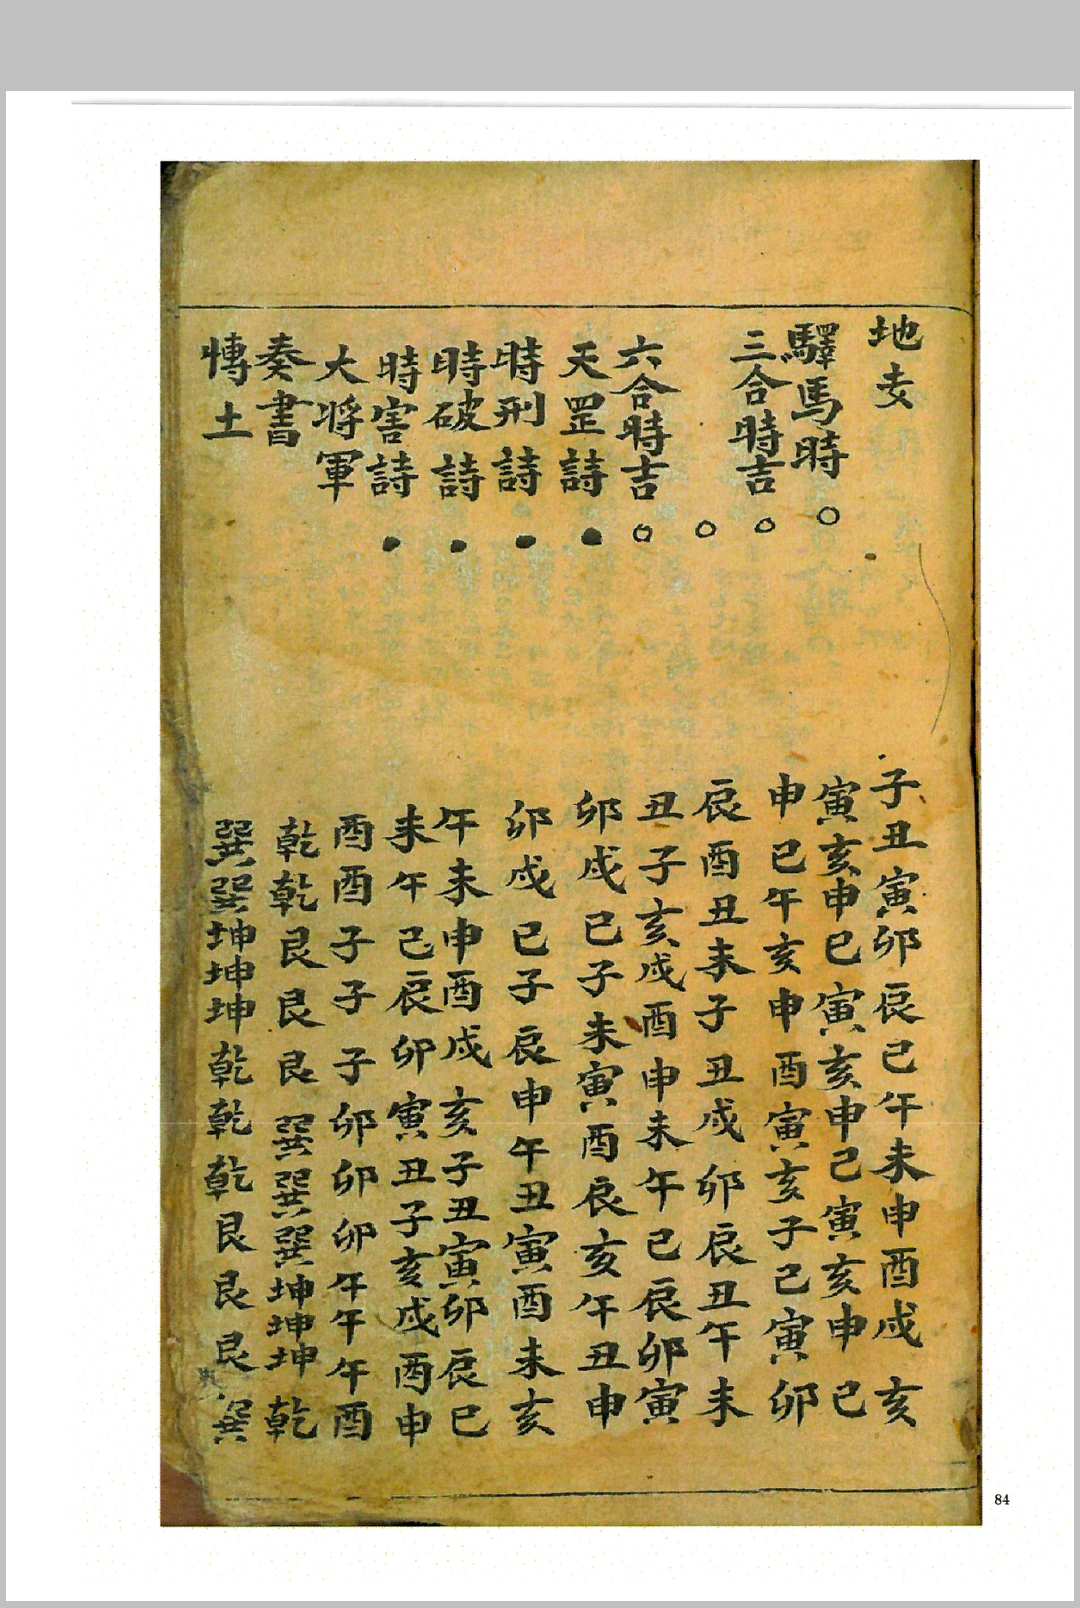 地支 子丑寅卯辰巳午未申酉戌亥
驛馬時○ 寅亥申巳寅亥申巳寅亥申巳
三合時吉○ 申巳午亥申酉寅亥子巳寅卯
○ 辰酉丑未子丑戌卯辰丑午未
六合時吉○ 丑子亥戌酉申未午巳辰卯寅
天罡詩● 卯戌巳子未寅酉辰亥午丑申
時刑詩● 卯戌巳子辰申午丑寅酉未亥
時破詩● 午未申酉戌亥子丑寅卯辰巳
時害詩● 未午巳辰卯寅丑子亥戌酉申
大将軍 酉酉子子子卯卯卯午午午酉
奏書 乾乾艮艮艮巽巽巽坤坤坤乾
愽土 巽巽坤坤坤乾乾乾艮艮艮巽
84